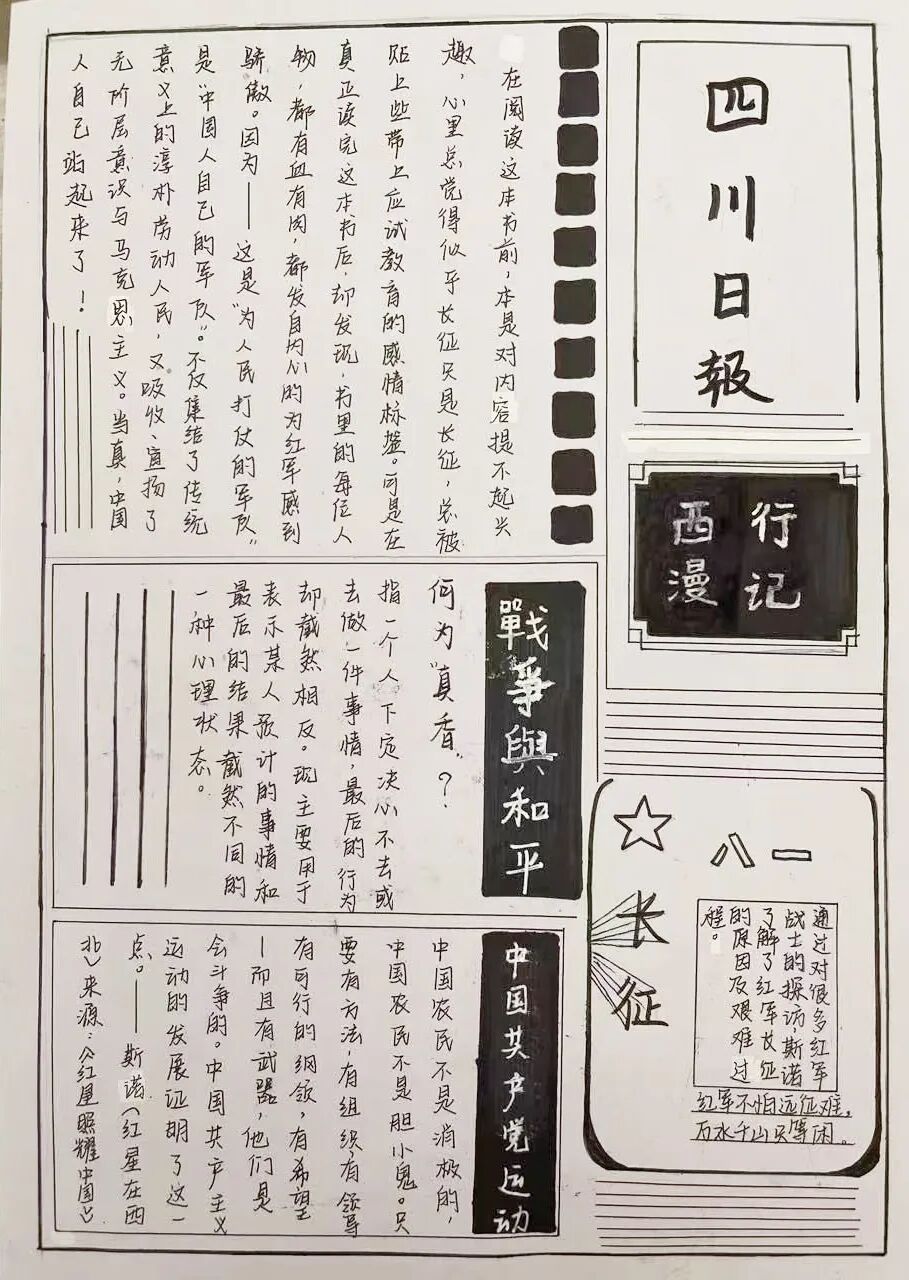 四川日報
西行
漫记
☆八一
长征
通过对很多红军
战士的探访，斯诺
了解了红军长征
的原因及艰难过
程。
红军不怕远征难，
万水千山只等闲。
在阅读这本书前，本是对内容提不起兴
趣，心里总觉得似乎长征只是长征，总被
贴上些带上应试教育的感情标签。可是在
真正读完这本书后，却发现，书里的每位人
物，都有血有肉，都发自内心的为红军感到
骄傲。因为——这是“为人民打仗的军队”
是“中国人自己的军队”。不仅集结了传统
意义上的淳朴劳动人民，又吸收、宣扬了
无阶层意识与马克思主义。当真，中国
人自己站起来了！
戰爭與和平
何为“真香”？
指一个人下定决心不去或
去做一件事情，最后的行为
却截然相反。现主要用于
表示某人预计的事情和
最后的结果截然不同的
一种心理状态。
中国共产党运动
中国农民不是消极的，
中国农民不是胆小鬼。只
要有方法，有组织，有领导
有可行的纲领，有希望
—而且有武器，他们是
会斗争的。中国共产主义
运动的发展证明了这一
点。——斯诺（红星在西
北）来源：《红星照耀中国》